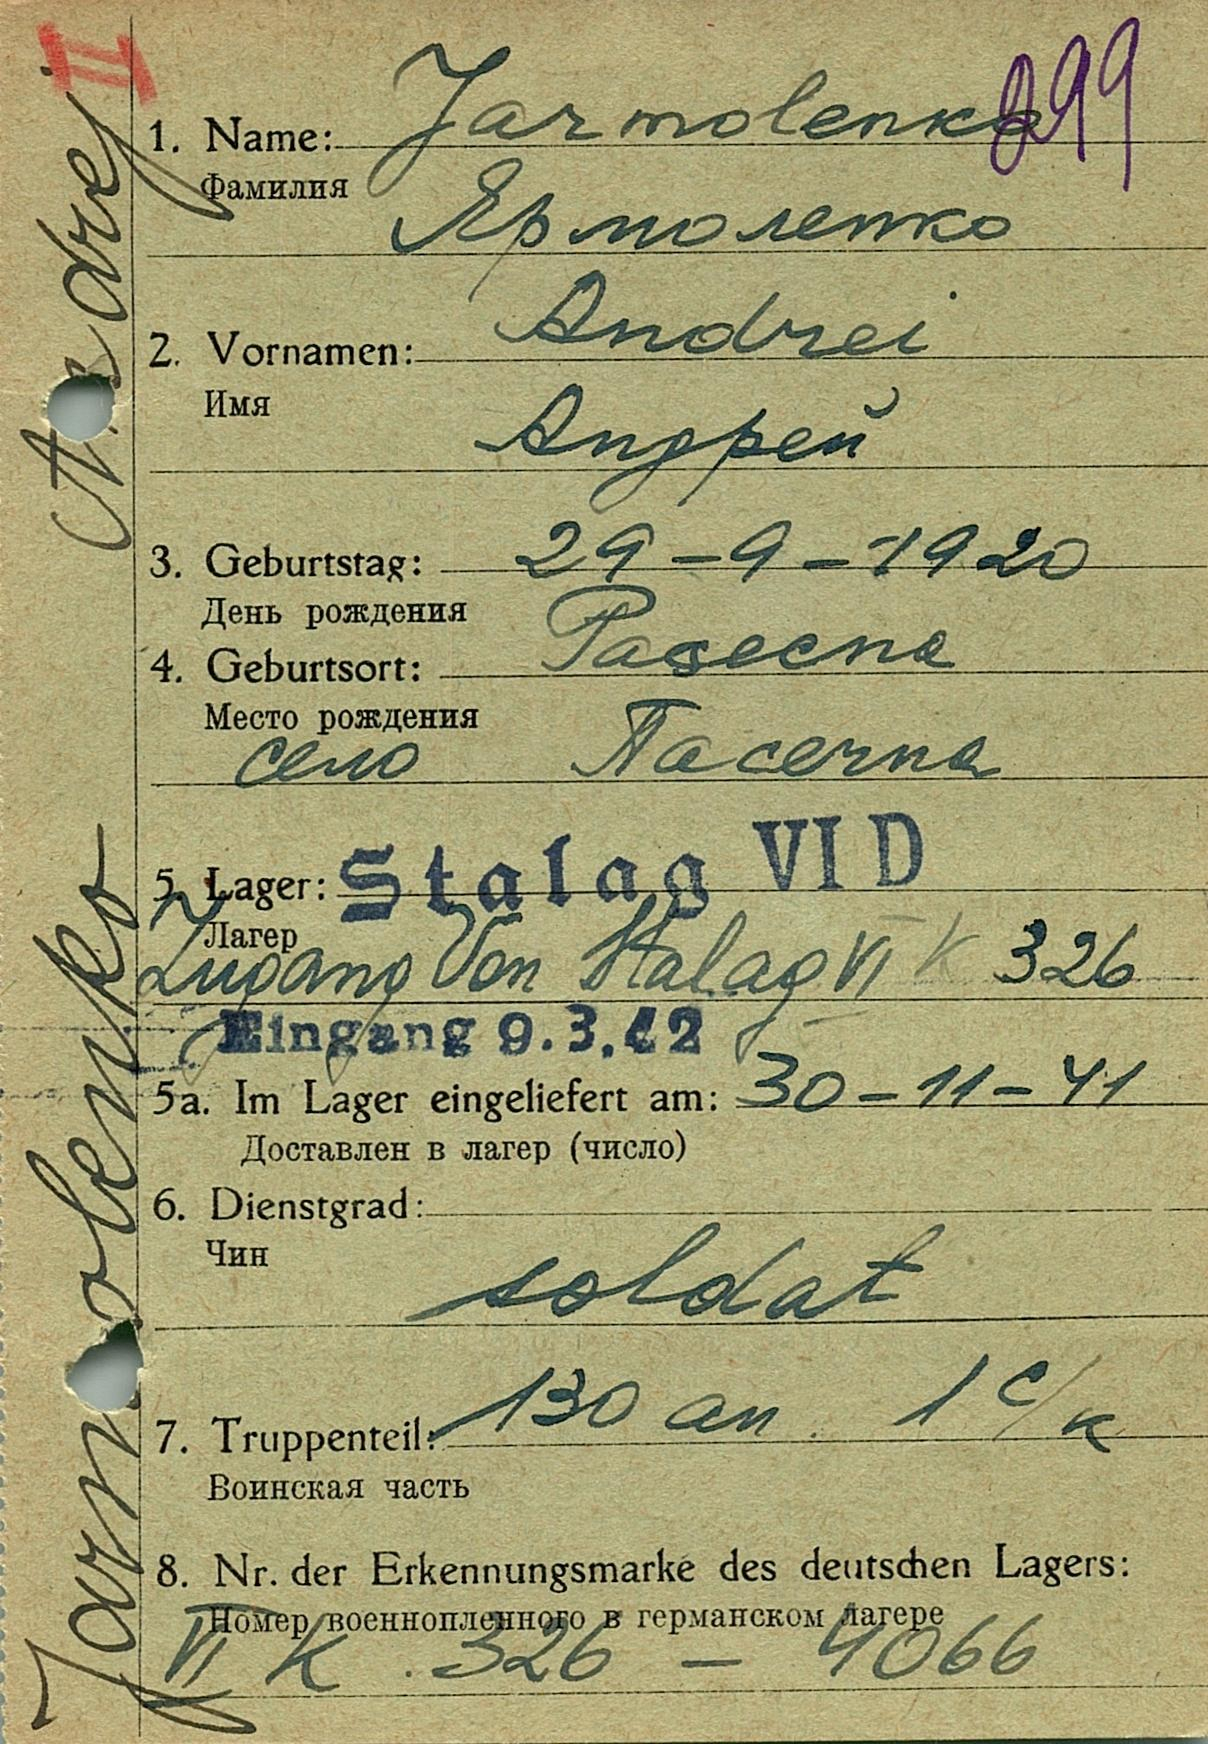 II
899
1. Name: Jarmolenko
Фамилия
Ярмоленко
2. Vornamen: Andrei
Имя
Андрей
3. Geburtstag: 29-9-1920
День рождения
4. Geburtsort: Pasecna
Место рождения
село Пасечна
5. Lager: Stalag VI D
Лагер
Zugang Von Stalag VI K 326
Eingang 9.3.42
5a. Im Lager eingeliefert am: 30-11-41
Доставлен в лагер (число)
6. Dienstgrad:
Чин
soldat
7. Truppenteil: 130 an 1 с/к
Воинская часть
8. Nr. der Erkennungsmarke des deutschen Lagers:
Номер военнопленного в германском лагере
VI K. 326 - 4066
Jarmolenko Andrej